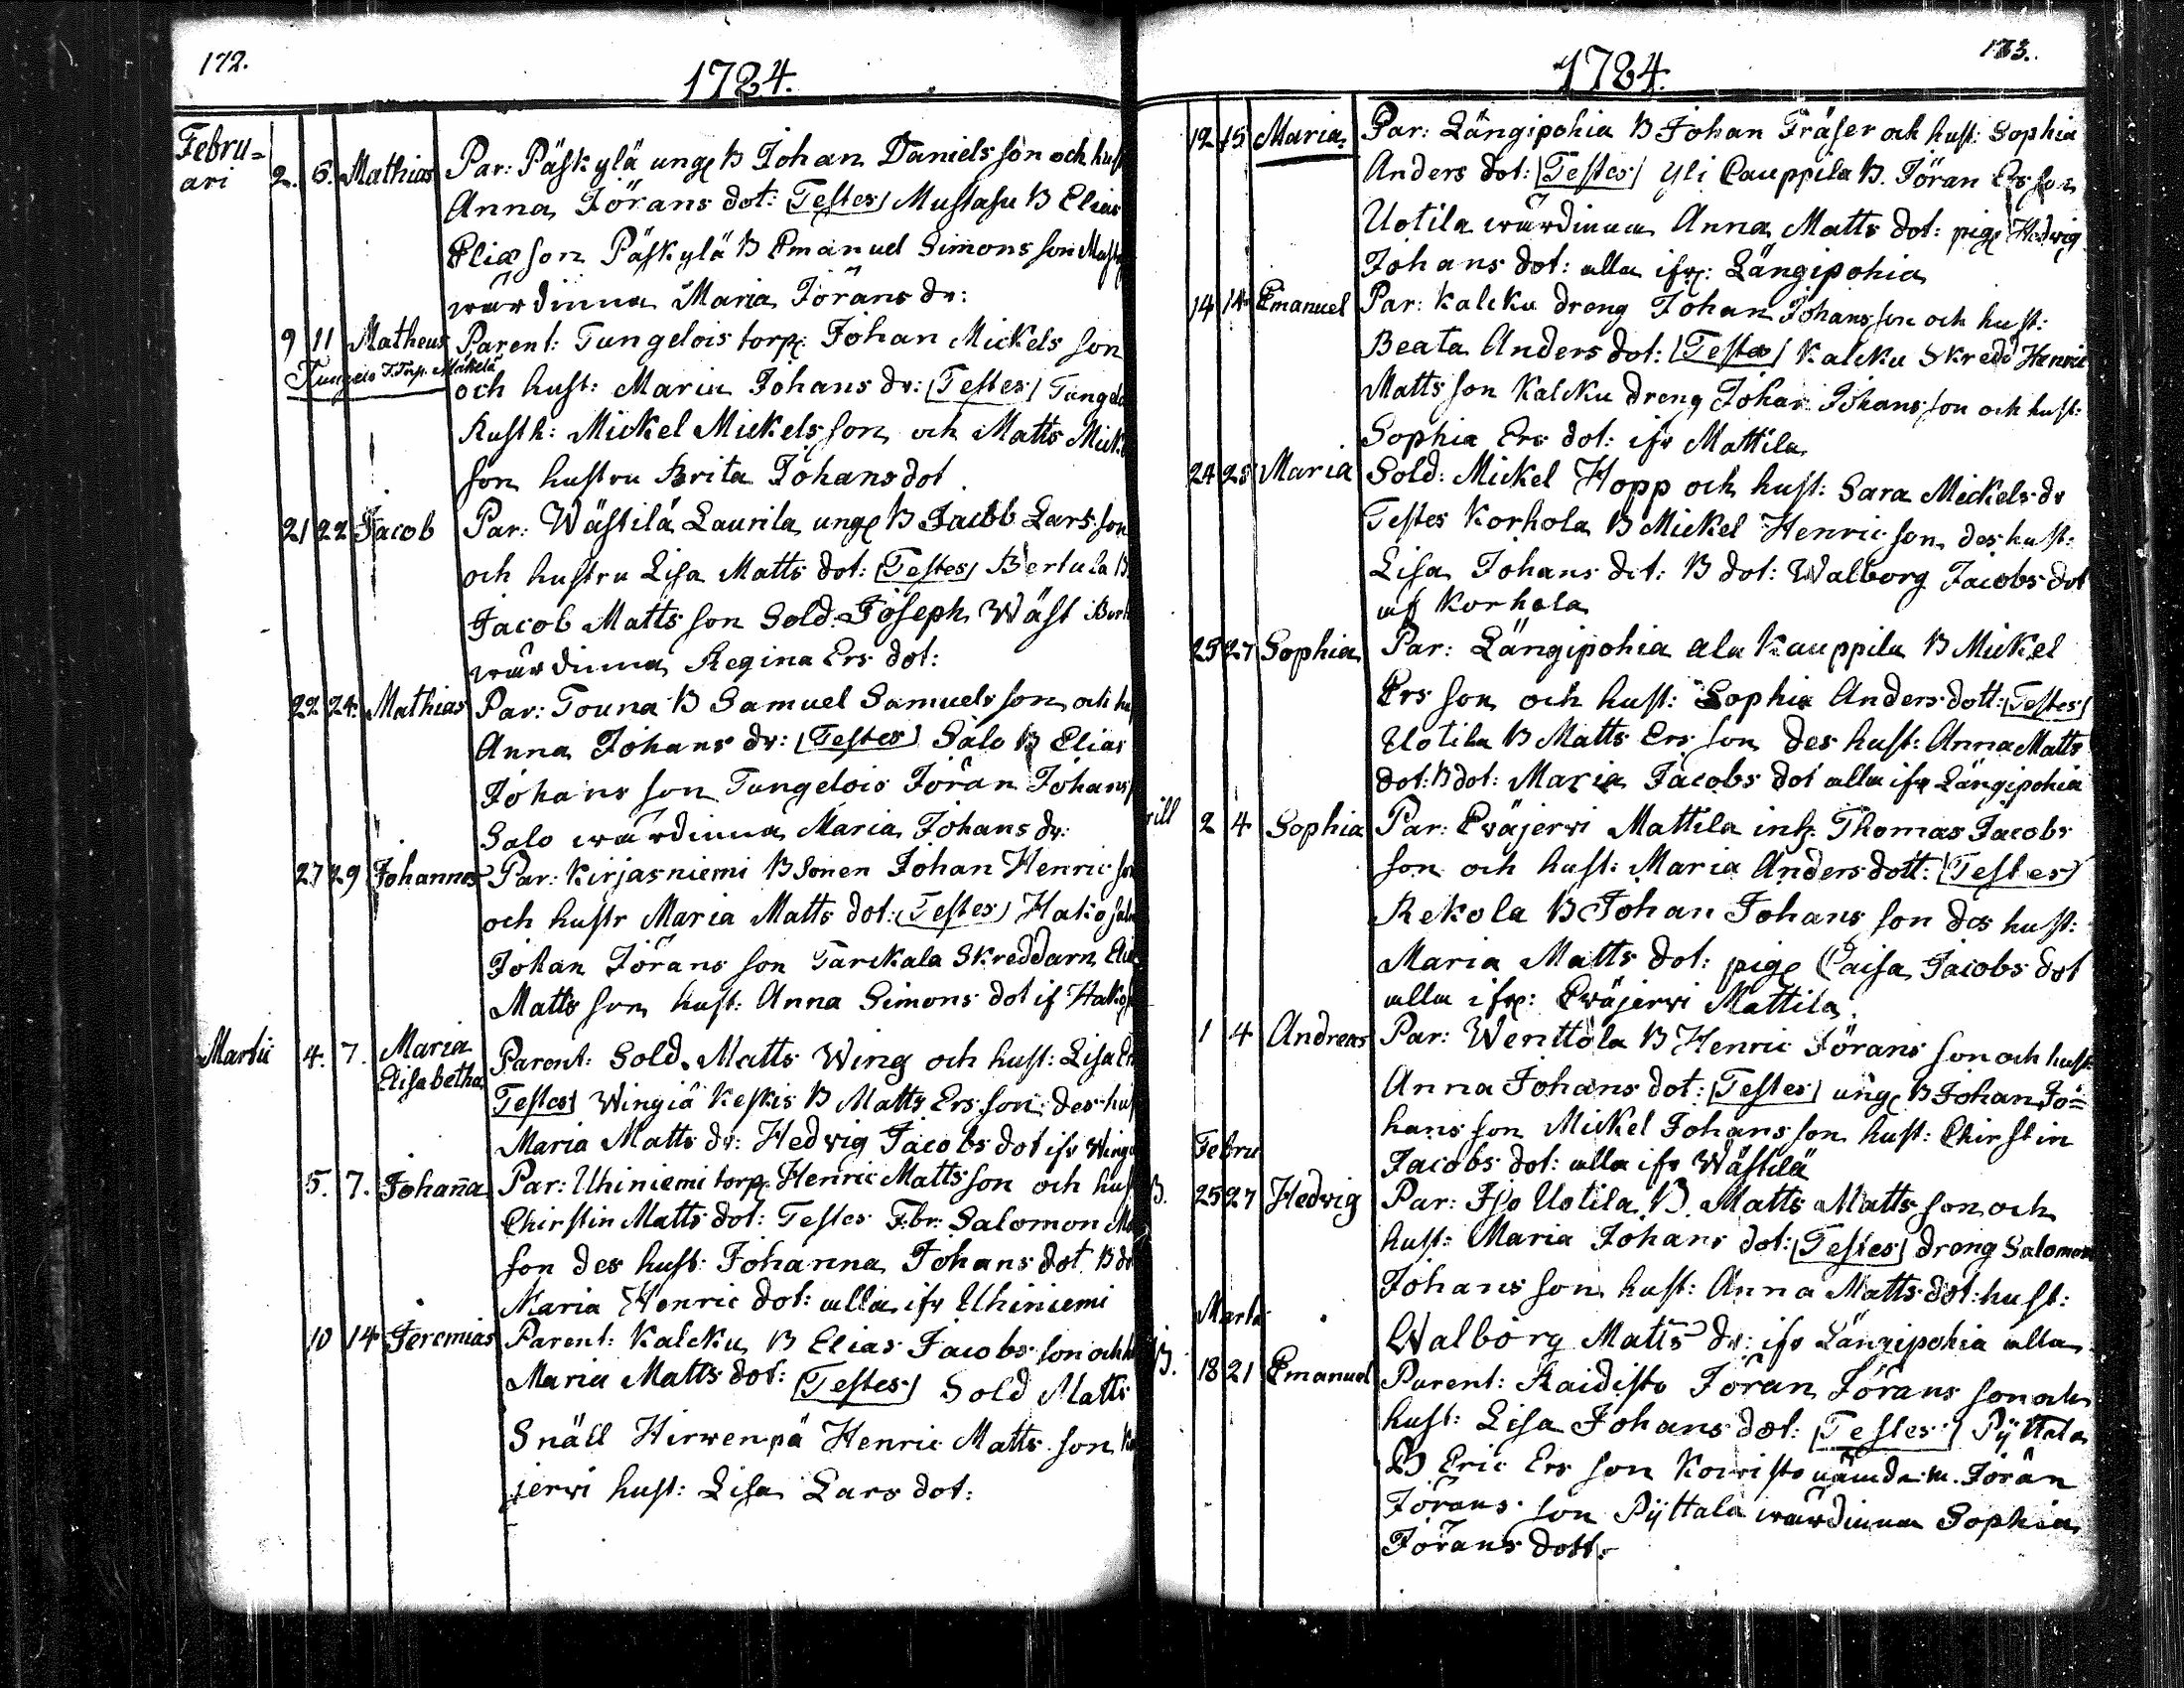 172.
1784.
Febru=
ari 2. 6. Mathias Par: Päskylä unge B Johan Daniels son och hust
Anna Jörans dot: Testes Mustasu B Elias
Eliæ son Päskylä B Emanuel Simons son
wärdinna Maria Jörans dr:
9 11 Matheus Parent: Tungelois torp: Johan Mickels son
Tungelo T. Torp. Mikelä
och hust: Maria Johans dr: Testes Tungelo
Rusth: Mickel Mickels son och Matts Mick
son hustru Brita Johans dot
21 22 Jacob Par: Wästilä Laurila unge B Jacob Lars son
och hustru Lisa Matts dot: Testes Bertula B
Jacob Matts son Sold. Joseph Wäst
wärdinna Regina Ers dot:
22 24. Mathias Par: Touna B Samuel Samuels son och hu
Anna Johans dr: Testes Salo B Elias
Johans son Tungelois Jöran Johans
Salo wärdinna Maria Johans dr:
27 29 Johannes Par: Kirjasniemi B sonen Johan Henric son
och hustr Maria Matts dot: Testes Hakosalo
Johan Jörans son Tarckala Skreddarn
Matts son hust: Anna Simons dot if
Martii 4. 7. Maria Parent: Sold. Matts Wing och hust: Lisa
Elisabetha
Testes Wingiä Keskis B Matts Ers son des hus
Maria Matts dr: Hedvig Jacobs dot ifr
5. 7. Johan̄a Par: Uhiniemi torp: Henric Matts son och hus
Chirstin Matts dot: Testes F.br: Salomon
son des hust: Johanna Johans dot. B dot
Maria Henric dot: alla ifr Uhiniemi
10 14 Jeremias Parent: Kalcku B Elias Jacobs son och h
Maria Matts dot: Testes Sold Matts
Snäll Hirwenpä Henric Matts son
jerwi hust: Lisa Lars dot:
173.
1784.
12 15 Maria Par: Längipohia B Johan Fräser och hust: Sophia
Anders dot: Testes Yli Cauppila B. Jöran Ers son
Uotila wärdinna Anna Matts dot: pige Hedwig
Johans dot: alla ifr: Längipohia
14 14 Emanuel Par: Kalcku dreng Johan Johans son och hust:
Beata Anders dot: Testes Kalcku Skredd Henric
Matts son Kalcku dreng Johan Johans son och hust:
Sophia Ers dot: ifr Mattila
24 25 Maria Sold: Mickel Hopp och hust: Sara Mickels dr
Testes Korhola B Mickel Henric son des hust:
Lisa Johans dot: B dot: Walborg Jacobs dot
af Korhola
25 27 Sophia Par: Längipohia ala Kauppila B Mickel
Ers son och hust: Sophia Anders dott: Testes
Uotila B Matts Ers son des hust: Anna Matts
dot: B dot: Maria Jacobs dot alla ifr Längipohia
rill 2 4 Sophia Par: Eväjerwi Mattila inh: Thomas Jacobs
son och hust: Maria Anders dott: Testes
Rekola B Johan Johans son des hust:
Maria Matts dot: pige Caisa Jacobs dot
alla ifr: Eväjerwi Mattila.
1 4 Andreas Par: Wenttola B Henric Jörans son och hust
Anna Johans dot: Testes unge B Johan Jo=
hans son Mickel Johans son hust: Chirstin
Febru
Jacobs dot: alla ifr Wästilä
B. 25 27 Hedvig Par: Iso Uotila B. Matts Matts son och
hust: Maria Johans dot: Testes dreng Salomon
Johans son hust: Anna Matts dot: hust:
Martii
Walborg Matts dr: ifr Längipohia alla
B. 18 21 Emanuel Parent: Raidisto Jöran Jörans son och
hust: Lisa Johans dot: Testes Pyttala
B Eric Ers son Koivisto nämde m. Jöran
Jörans son Pyttala wärdinna Sophia
Jörans dott: